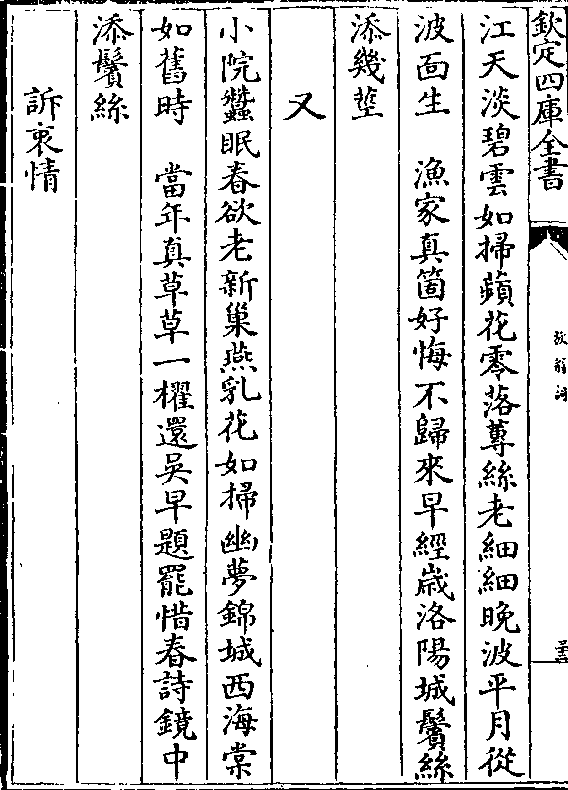 欽定四庫全書
放翁詞
江天淡碧雲如掃蘋花零落蓴絲老細細晚波平月從
波面生　漁家真箇好悔不歸來早經歲洛陽城鬢絲
添幾莖
又
小院蠶眠春欲老新巢燕乳花如掃幽夢錦城西海棠
如舊時　當年真草草一櫂還吳早題罷惜春詩鏡中
添鬢絲
訴衷情